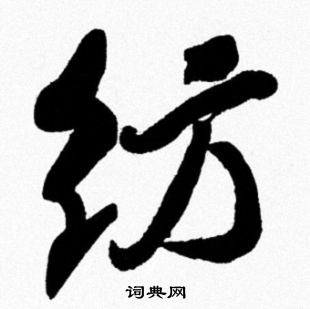 纺
词典网